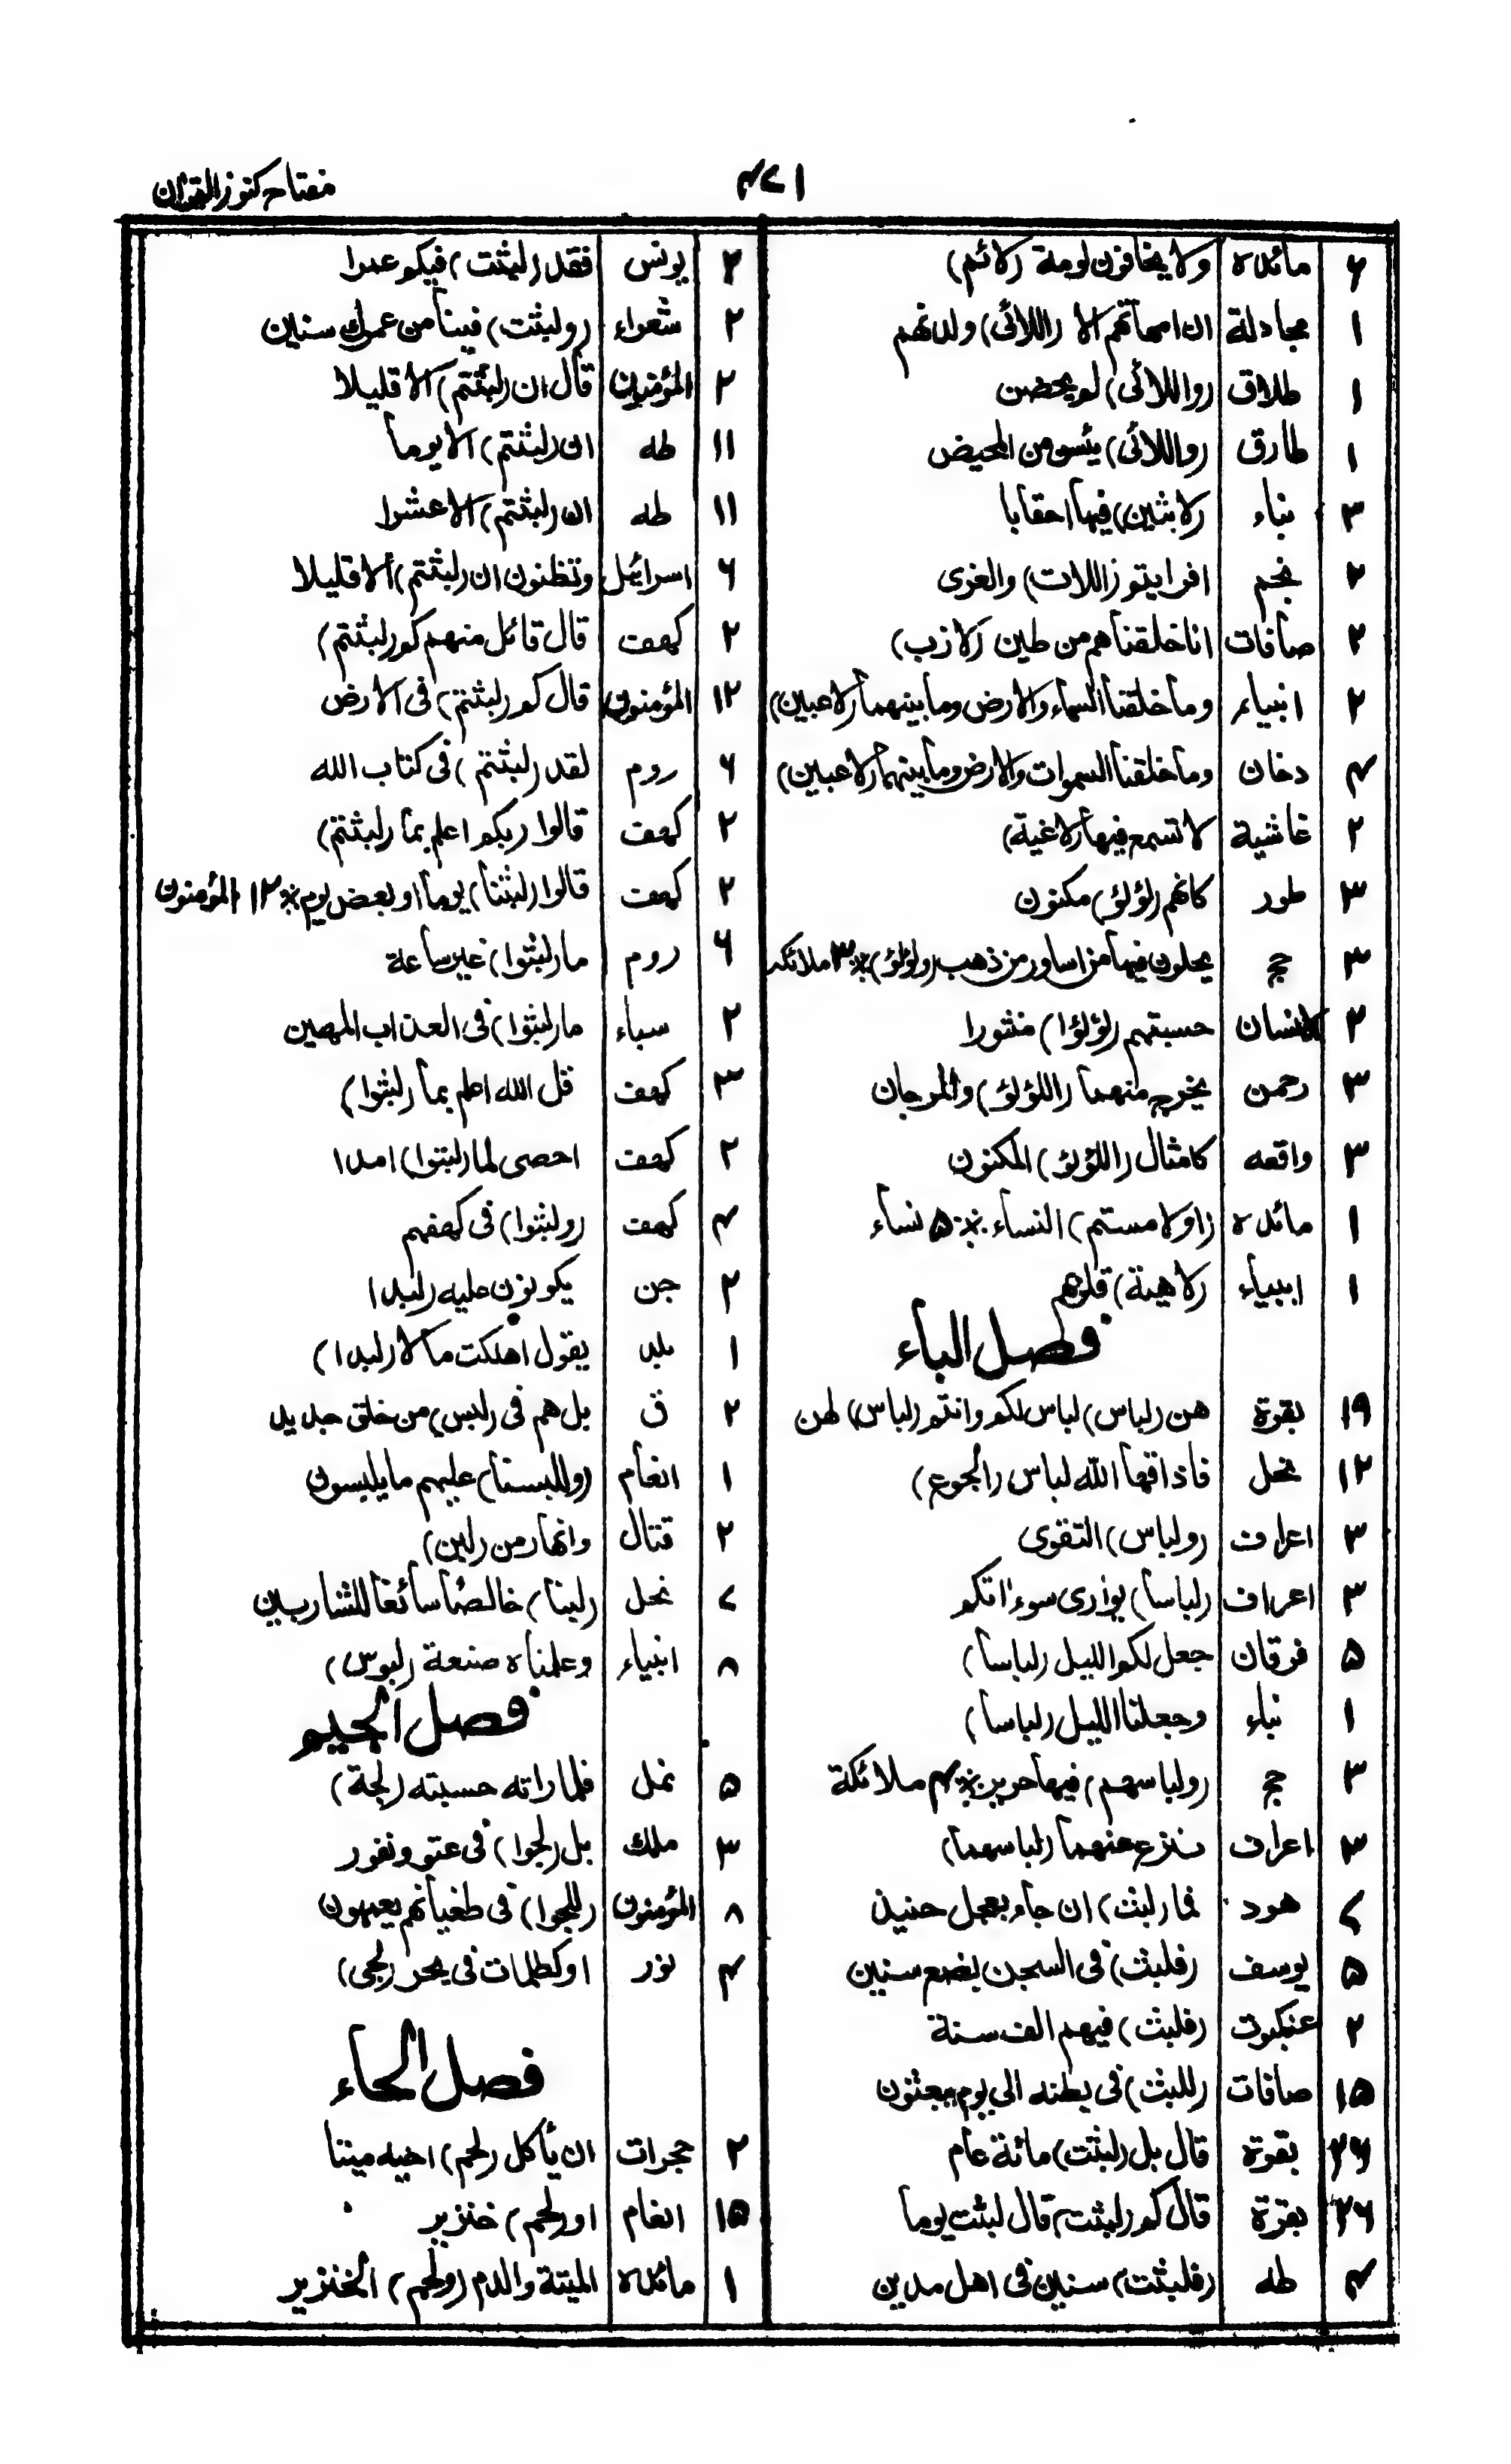 مفتاح كنوز القرآن
۴۷۱
۶ مائده ولا يخافون لومة (لائم)
۱ مجادلة ان امهاتهم الا (اللائى) ولدنهم
۱ طلاق (واللائى) لم يحضن
۱ طارق (واللائى) يئسو من المحيض
۳ نباء (لابثين) فيها احقابا
۲ نجم افرايتم (اللات) والعزى
۲ صافات انا خلقناهم من طين (لازب)
۲ انبياء وما خلقنا السماء والارض وما بينهما (لاعبين)
۴ دخان وما خلقنا السموات والارض وما بينهما (لاعبين)
۲ غاشية لا تسمع فيها (لاغية)
۳ طور كانهم (لؤلؤ) مكنون
۳ حج يحلون فيها من اساور من ذهب (ولؤلؤ) * ۳ ملائكه
۲ الانسان حسبتهم (لؤلؤا) منثورا
۳ رحمن يخرج منهما (اللؤلؤ) والمرجان
۳ واقعه كامثال (اللؤلؤ) المكنون
۱ مائده (اولامستم) النساء * ۵ نساء
۱ انبياء (لاهية) قلوبهم
فصل الباء
۱۹ بقرة هن (لباس) لباس لكم وانتم (لباس) لهن
۱۲ نحل فاذاقها الله لباس (الجوع)
۳ اعراف (ولباس) التقوى
۳ اعراف (لباسا) يوارى سوءاتكم
۵ فرقان جعل لكم الليل (لباسا)
۱ نباء وجعلنا الليل (لباسا)
۳ حج (ولباسهم) فيها حرير * ۴ ملائكة
۳ اعراف ينزع عنهما (لباسهما)
۷ هود فما (لبث) ان جاء بعجل حنيذ
۵ يوسف (فلبث) فى السجن بضع سنين
۲ عنكبوت (فلبث) فيهم الف سنة
۱۵ صافات (للبث) فى بطنه الى يوم يبعثون
۳۶ بقرة قال بل (لبثت) مائة عام
۳۶ بقرة قال كم (لبثت) قال لبثت يوما
۴ طه (فلبثت) سنين فى اهل مدين
۲ يونس فقد (لبثت) فيكم عمرا
۲ شعراء (ولبثت) فينا من عمرك سنين
۲ المؤمنون قال ان (لبثتم) الا قليلا
۱۱ طه ان (لبثتم) الا يوما
۱۱ طه ان (لبثتم) الا عشرا
۶ اسرائيل وتظنون ان (لبثتم) الا قليلا
۲ كهف قال قائل منهم كم (لبثتم)
۱۲ المؤمنون قال كم (لبثتم) فى الارض
۶ روم لقد (لبثتم) فى كتاب الله
۲ كهف قالوا ربكم اعلم بما (لبثتم)
۲ كهف قالوا (لبثنا) يوما او بعض يوم * ۱۲ المؤمنون
۶ روم ما (لبثوا) غير ساعة
۲ سباء ما (لبثوا) فى العذاب المهين
۳ كهف قل الله اعلم بما (لبثوا)
۲ كهف احصى لما (لبثوا) امدا
۴ كهف (ولبثوا) فى كهفهم
۲ جن يكونون عليه (لبدا)
۱ بلد يقول اهلكت مالا (لبدا)
۲ ق بل هم فى (لبس) من خلق جديد
۱ انعام (وللبسنا) عليهم مايلبسون
۲ قتال وانهار من (لبن)
۷ نحل (لبنا) خالصا سائغا للشاربين
۸ انبياء وعلمناه صنعة (لبوس)
فصل الجيم
۵ نمل فلما راته حسبته (لجة)
۳ ملك بل (لجوا) فى عتو ونفور
۸ المؤمنون (للجوا) فى طغيانهم يعمهون
۴ نور او كظلمات فى بحر (لجى)
فصل الحاء
۲ حجرات ان يأكل (لحم) اخيه ميتا
۱۵ انعام او (لحم) خنزير
۱ مائده الميتة والدم (ولحم) الخنزير